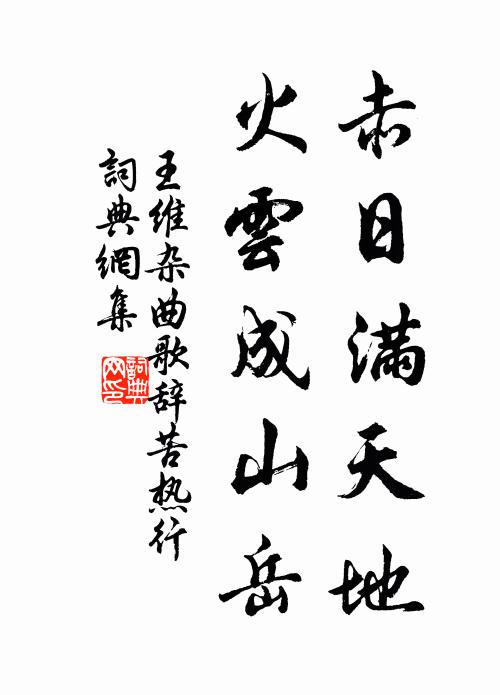 赤日满天地
火雲成山岳
王维杂曲歌辞苦热行
詞典網集
詞典网印